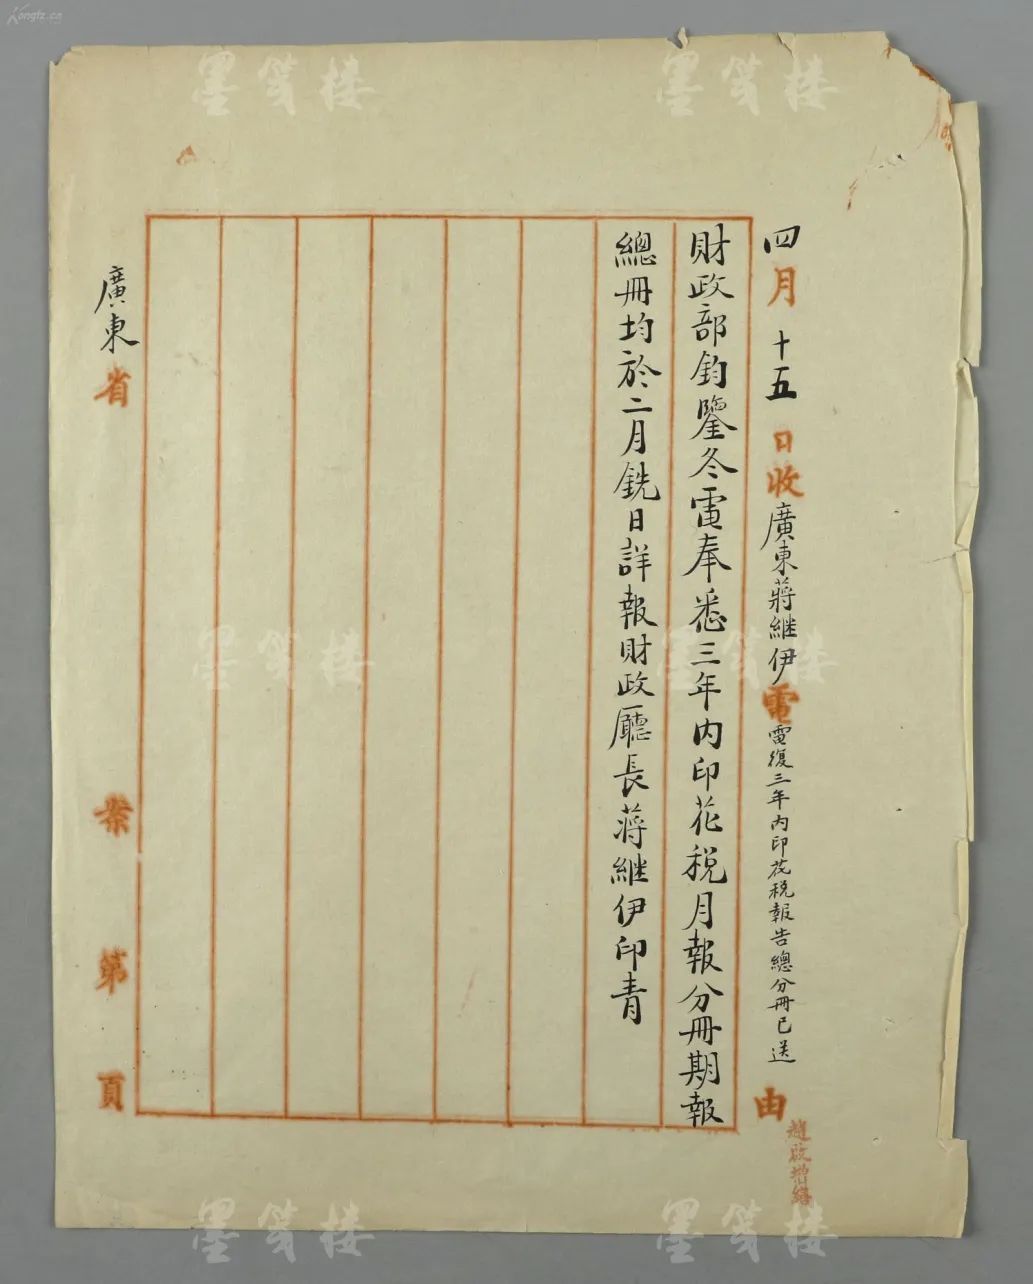 四月十五日收廣東蔣繼伊電電復三年內印花稅報告總分冊已送由
趙啟增繕
財政部鈞鑒冬電奉悉三年內印花稅月報分冊期報
總冊均於二月銑日詳報財政廳長蔣繼伊印青
廣東省 案第 頁
墨笺楼
墨笺楼
墨笺楼
墨笺楼
墨笺楼
墨笺楼
Kongfz.cn